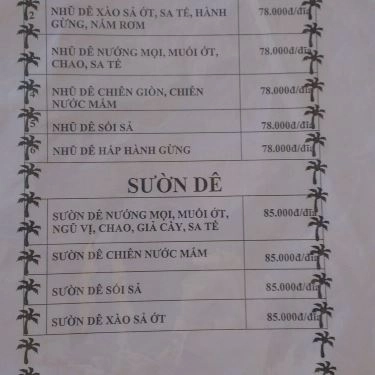 2 NHŨ DÊ XÀO SẢ ỚT, SA TẾ, HÀNH 78.000đ/đĩa
GỪNG, NẤM RƠM
NHŨ DÊ NƯỚNG MỌI, MUỐI ỚT, 78.000đ/đĩa
CHAO, SA TẾ
4 NHŨ DÊ CHIÊN GIÒN, CHIÊN 78.000đ/đĩa
NƯỚC MẮM
5 NHŨ DÊ SÓI SẢ 78.000đ/đĩa
6 NHŨ DÊ HẤP HÀNH GỪNG 78.000đ/đĩa
SƯỜN DÊ
SƯỜN DÊ NƯỚNG MỌI, MUỐI ỚT, 85.000đ/đĩa
NGŨ VỊ, CHAO, GIẢ CẦY, SA TẾ
SƯỜN DÊ CHIÊN NƯỚC MẮM 85.000đ/đĩa
SƯỜN DÊ SÓI SẢ 85.000đ/đĩa
SƯỜN DÊ XÀO SẢ ỚT 85.000đ/đĩa